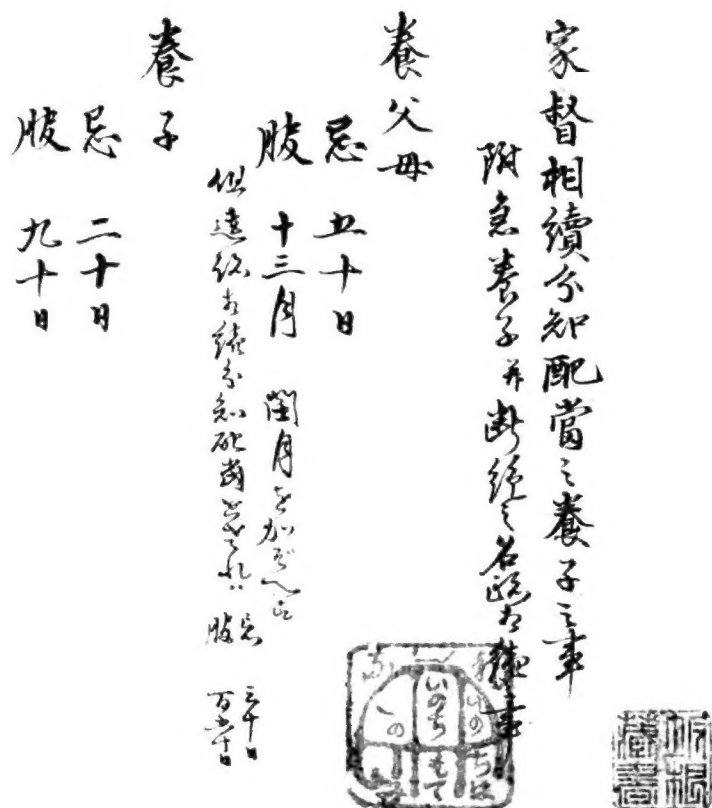 家督相續分知配當之養子之事
附急養子并断絶之名跡相続之事
養父母
忌 五十日
服 十三月 閏月を加へず
但遺跡相続分知配當せざれバ 忌 三十日
服 百五十日
養子
忌 二十日
服 九十日
いのち
もて